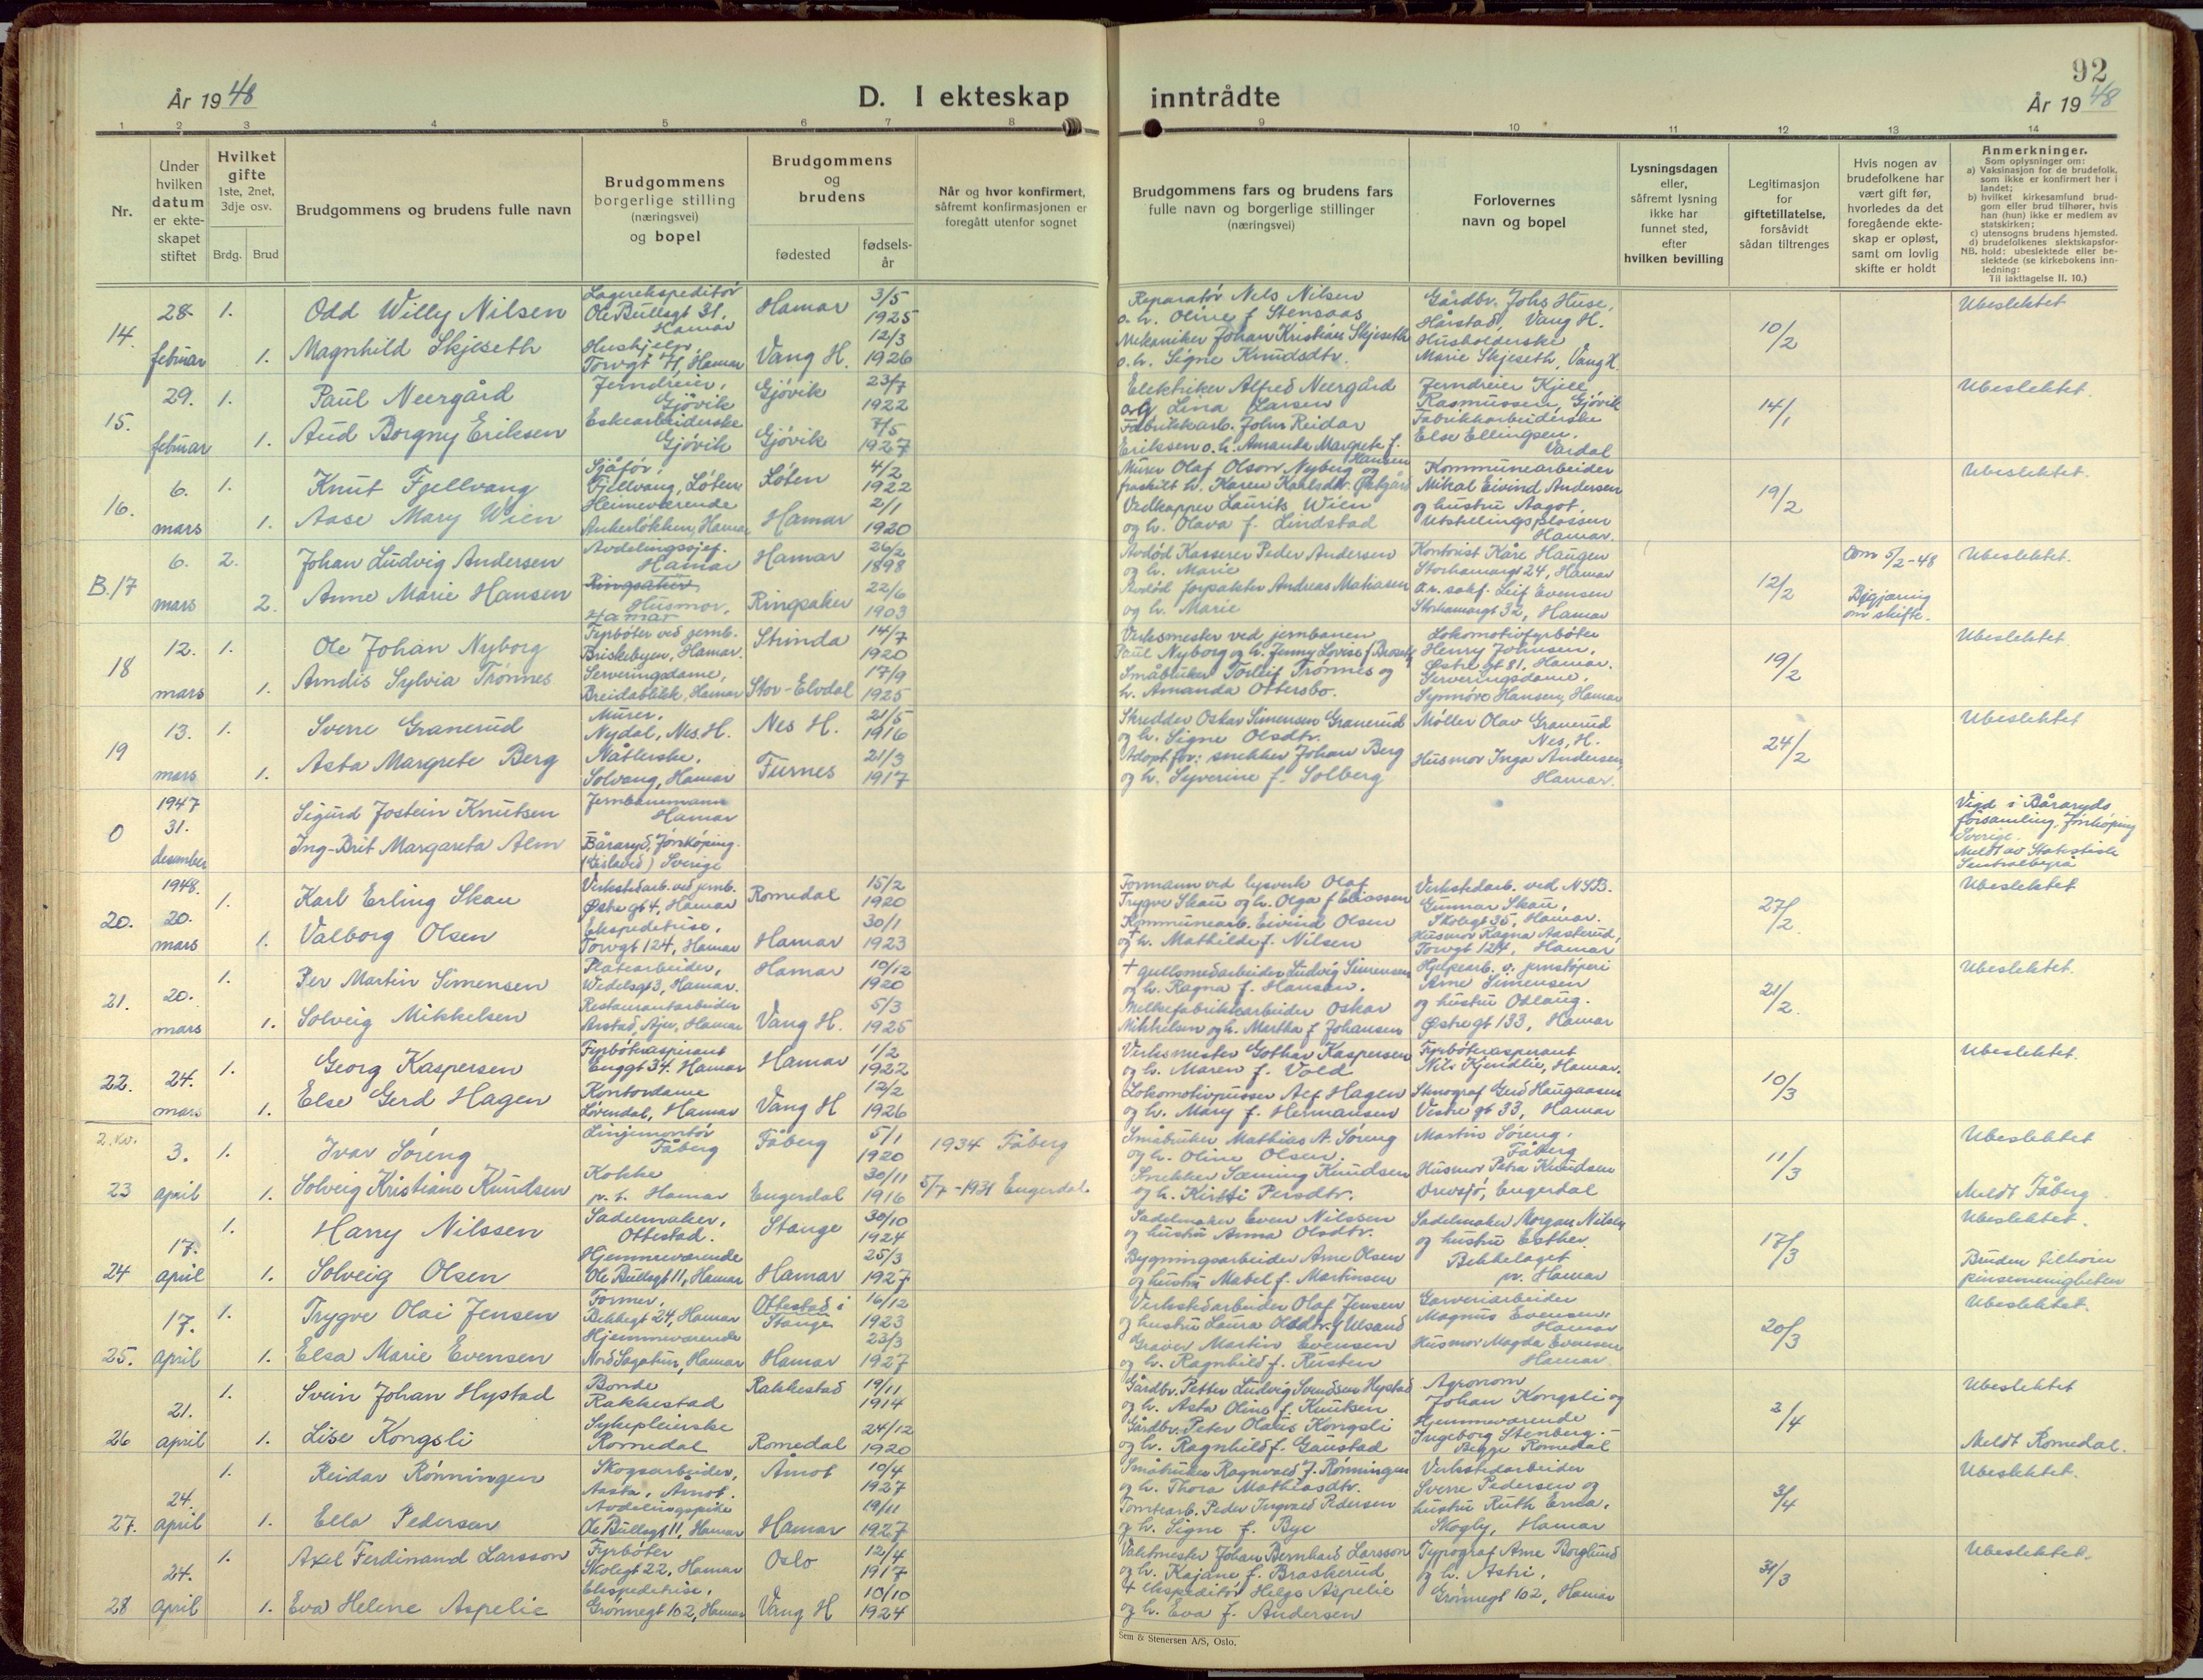 92
År 1948
D. I ekteskap inntrådte
År 1948
1 2 3 4 5 6 7 8 9 10 11 12 13 14
Nr.
Under hvilken datum er ekte-skapet stiftet
Hvilket gifte 1ste, 2net, 3dje osv.
Brdg. Brud
Brudgommens og brudens fulle navn
Brudgommens borgerlige stilling (næringsvei) og bopel
Brudgommens og brudens
fødested
fødsels-år
Når og hvor konfirmert, såfremt konfirmasjonen er foregått utenfor sognet
Brudgommens fars og brudens fars fulle navn og borgerlige stillinger (næringsvei)
Forlovernes navn og bopel
Lysningsdagen eller, såfremt lysning ikke har funnet sted, efter hvilken bevilling
Legitimasjon for giftetillatelse, forsåvidt sådan tiltrenges
Hvis nogen av brudefolkene har vært gift før, hvorledes da det foregående ekte-skap er opløst, samt om lovlig skifte er holdt
Anmerkninger.
Som oplysninger om:
a) Vaksinasjon for de brudefolk, som ikke er konfirmert her i landet;
b) hvilket kirkesamfund brud-gom eller brud tilhører, hvis han (hun) ikke er medlem av statskirken;
c) utensogns brudens hjemsted.
d) brudefolkenes slektskapsfor-hold: ubeslektede eller be-slektede (se kirkebokens inn-ledning:
NB. Til iakttagelse II. 10.)
14. 28. februar 1. Odd Willy Nilsen Lagerekspeditør Ole Bullsgt 31, Hamar Hamar 3/5 1925 Reparatør Nels Nilsen o. h. Oline f Stensaas Gårdbr. Johs Huse, Hårstad, Vang H. 10/2 Ubeslektet
1. Magnhild Skjeseth Hushjelp, Torvgt 71, Hamar Vang H. 12/3 1926 Mekaniker Johan Kristian Skjeseth o. h. Signe Knudsdtr. Husholderske Marie Skjeseth, Vang H.
15. 29. februar 1. Paul Neergård Jerndreier, Gjøvik Gjøvik 23/7 1922 Elektriker Alfred Neergård og Lina Larsen Jerndreier Kjell Rasmussen, Gjøvik 14/1 Ubeslektet.
1. Aud Borgny Eriksen Eskearbeiderske Gjøvik Gjøvik 7/5 1927 Fabrikkarb. John Reidar Eriksen o. h. Amanda Margrete f. Hansen Fabrikkarbeiderske Else Ellingsen, Vardal
16. 6. mars 1. Knut Fjellvang Sjåfør. Fjellvang, Løten Løten 4/2 1922 Murer Olaf Olson Nyberg og fraskilt h. Karen Karlsdtr. Østgård Kommunearbeider Mikal Eivind Andersen og hustru Aagot, Utstillingsplassen Hamar. 19/2 Ubeslektet.
1. Aase Mary Wien Heimeværende Ankerløkken, Hamar Hamar 2/1 1920 Vedkapper Laurits Wien og h. Olava f. Lindstad
B.17 6. mars 2. Johan Ludvig Andersen Avdelingssjef. Hamar Hamar 26/2 1898 Avdød Kasserer Peder Andersen og h. Marie Kontorist Kåre Haugen Storhamargt 24, Hamar 12/2 Dom 5/2-48 Begjæring om skifte. Ubeslektet.
2. Anne Marie Hansen Ringsaker Husmor, Hamar Ringsaker 22/6 1903 Avdød forpakter Andreas Matiasen og h. Marie O.r. sakf. Leif Evensen Storhamargt 32, Hamar
18 12. mars 1. Ole Johan Nyborg Fyrbøter ved jernb. Briskebyen, Hamar. Strinda 14/7 1920 Verksmester ved jernbanen Paul Nyborg og h. Jenny Lovise f Lokomotivfyrbøter Henry Johnsen, Østre gt 81, Hamar. 19/2 Ubeslektet
1. Arndis Sylvia Trønnes Serveringsdame, Breidablikk, Hamar Stor-Elvdal 17/9 1925 Småbruker Torleif Trønnes og h. Amanda Ottersbo. Serveringsdame, Synnøve Hansen, Hamar
19 13. mars 1. Sverre Granerud Murer, Nydal, Nes. H. Nes H. 21/5 1916 Skredder Oskar Simensen Granerud og h. Signe Olsdtr. Møller Olav Granerud Nes, H. 24/2 Ubeslektet
1. Asta Margrete Berg Nåtlerske, Solvang, Hamar Furnes 21/3 1917 Adopt.for: snekker Johan Berg og h. Syverine f. Solberg Husmor Inga Andersen, Hamar.
0 1947 31. desember Sigurd Jostein Knutsen Jernbanemann Hamar Vigd i Båraryds forsamling, Jönköping Sverige. Meldt av Statistisk Sentralbyrå
Ing-Brit Margareta Alm Båraryd, Jönköping. (Gislaved) Sverige
20. 1948. 20. mars 1. Karl Erling Skau Verkstedarb. ved jernb. Østre gt 4, Hamar Romedal 15/2 1920 Formann ved lysverk Olaf Trygve Skau og h. Olga f Eliassen Verkstedarb. ved NSB. Gunnar Skau, Skolegt 35, Hamar. 27/2 Ubeslektet
1. Valborg Olsen Ekspeditrise, Torvgt 124, Hamar Hamar 30/1 1923 Kommunearb. Eivind Olsen og h. Mathilde f. Nilsen Husmor Ragna Aasterud, Torvgt 124, Hamar
21. 20. mars 1. Per Martin Simensen Platearbeider, Wedelsgt 3, Hamar. Hamar 10/12 1920 + gullsmedarbeider Ludvig Simensen og h. Ragna f. Hansen. Hjelpearb. v. jernstøperi Arne Simensen og hustru Oslaug. Østre gt 133, Hamar 21/2 Ubeslektet.
1. Solveig Mikkelsen Restaurantarbeider Arstad, Ajer, Hamar Vang H. 5/3 1925 Melkefabrikkarbeider Oskar Mikkelsen og h. Martha f Johansen
22. 24. mars 1. Georg Kaspersen Fyrbøteraspirant Enggt 34. Hamar Hamar 1/2 1922 Verksmester Gothar Kaspersen og h. Maren f. Vold Fyrbøteraspirant Nils Kjendlie, Hamar. 10/3 Ubeslektet.
1. Else Gerd Hagen Kontordame Løvendal, Hamar Vang H 12/2 1926 Lokomotivpusser Alf Hagen og h. Mary f. Hermansen Stenograf Gerd Haugaasen Vestre gt 33, Hamar
2. kv.
23 3. april 1. Ivar Søreng Linjemontør Fåberg Fåberg 5/1 1920 1934 Fåberg Småbruker Mathias A. Søreng og h. Oline Olsen. Martin Søreng, Fåberg 11/3 Ubeslektet
1. Solveig Kristiane Knudsen Kokke p. t. Hamar Engerdal 30/11 1916 5/7-1931 Engerdal. Snekker Sæming Knudsen og h. Kirsti Persdtr. Husmor Petra Knudsen Drevsjø, Engerdal Meldt Fåberg
24 17. april 1. Harry Nilssen Sadelmaker, Ottestad. Stange 30/10 1924 Sadelmaker Even Nilssen og hustru Anna Olsdtr. Sadelmaker Morgan Nilsen og hustru Esther Bekkelaget pr. Hamar 17/3 Ubeslektet.
1. Solveig Olsen Hjemmeværende Ole Bullsgt 11, Hamar Hamar 25/3 1927 Bygningsarbeider Arne Olsen og hustru Mabel f. Martinsen Bruden tilhører pinsemenigheten
25. 17. april 1. Trygve Olai Jensen Former, Bekkegt 24, Hamar Ottestad i Stange 16/12 1923 Verkstedarbeider Olaf Jensen og hustru Laura Olsdtr. f Ulsand Garveriarbeider Magnus Evensen, Hamar 20/3 Ubeslektet.
1. Elsa Marie Evensen Hjemmeværende Nord Sagatun, Hamar Hamar 23/3 1927 Graver Martin Evensen og h. Ragnhild f. Rusten Husmor Magda Evensen Hamar.
26 21. april 1. Svein Johan Hystad Bonde Rakkestad Rakkestad 19/11 1914 Gårdbr. Petter Ludvig Svendsen Hystad og h. Asta Oline f. Knutsen Agronom Johan Kongsli og Hjemmeværende Ingeborg Stenberg.- Begge Romedal 2/4 Ubeslektet
1. Lise Kongsli Sykepleierske Romedal Romedal 24/12 1920 Gårdbr. Peter Olaus Kongsli og h. Ragnhild f. Gaustad Meldt Romedal.
27. 24. april 1. Reidar Rønningen Skogsarbeider, Aasta, Åmot. Åmot 10/4 1927 Småbruker Ragnvald J. Rønningen og h. Thora Mathiasdtr. Verkstedarbeider Sverre Pedersen og hustru Ruth Erna, Skogly, Hamar 3/4 Ubeslektet.
1. Ella Pedersen Avdelingspike Ole Bullsgt 11, Hamar Hamar 19/11 1927 Tomtearb. Peder Ingvald Pedersen og h. Signe f. Bye
28 24. april 1. Axel Ferdinand Larsson Fyrbøter Skolegt 22, Hamar Oslo 12/4 1917 Vaktmester Johan Bernhard Larsson og h. Kajane f. Braskerud Typograf Arne Borglund og h. Astri, Grønnegt 102, Hamar 31/3 Ubeslektet.
1. Eva Helene Aspelie Ekspeditrise, Grønnegt 102, Hamar Vang H 10/10 1924 + ekspeditør Helge Aspelie og h. Eva f. Andersen
Sem & Stenersen A/S, Oslo.